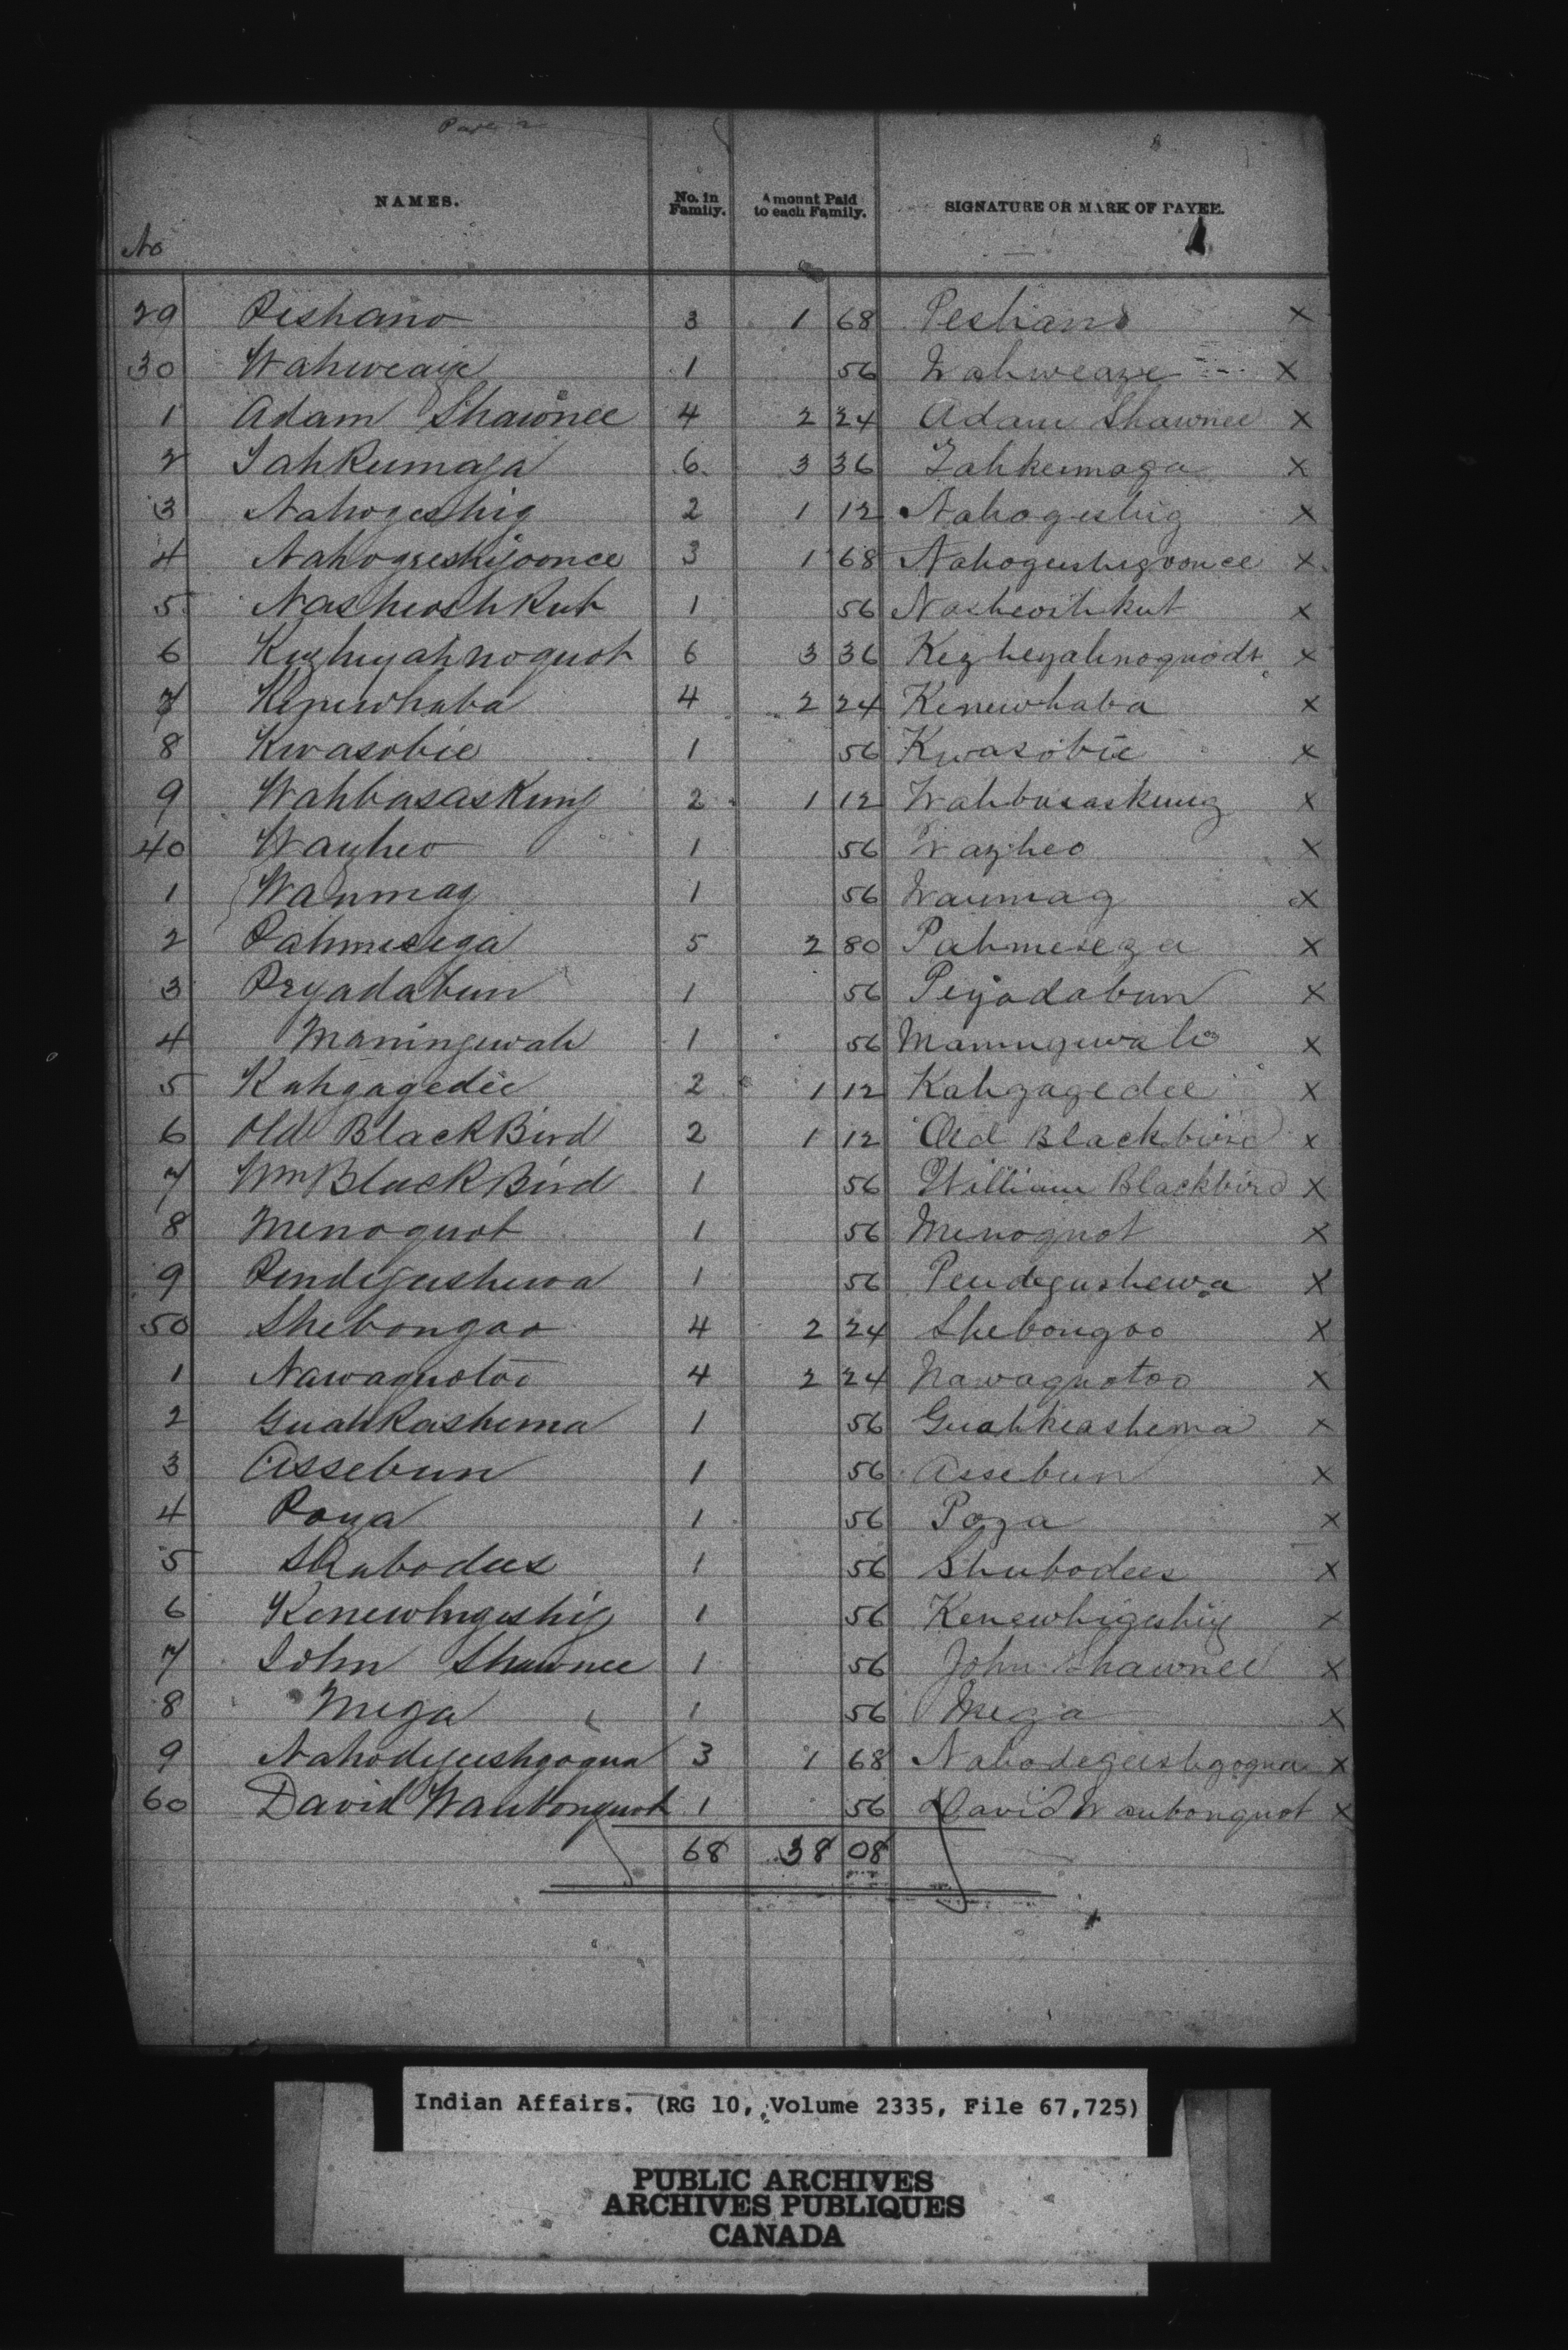 Page 2
NAMES. No. in Family. Amount Paid to each Family. SIGNATURE OR MARK OF PAYEE.
No
29 Peshano 3 1 68 Peshano X
30 Wahweaze 1 56 Wahweaze X
1 Adam Shawnee 4 2 24 Adam Shawnee X
2 Jahkumaga 6 3 36 Zahkeimaga X
3 Nahogeshig 2 1 12 Nahogeshig X
4 Nahogeeshigoonce 3 1 68 Nahogeeshigoonce X
5 Nasheoshkut 1 56 Nasheoshkut X
6 Kezheyahnoquot 6 3 36 Kezheyahnoquodt X
7 Kenewhaba 4 2 24 Kenewhaba X
8 Kwasobie 1 56 Kwasobie X
9 Wahbasaskung 2 1 12 Wahbasaskung X
40 Wazheo 1 56 Wazheo X
1 Waumag 1 56 Waumag X
2 Pahmesega 5 2 80 Pahmesega X
3 Peyadabun 1 56 Peyadabun X
4 Maningwah 1 56 Maningewah X
5 Kahgagedee 2 1 12 Kahgagedee X
6 Old BlackBird 2 1 12 Old Blackbird X
7 Wm BlackBird 1 56 William Blackbird X
8 Menoquot 1 56 Menoquot X
9 Pendegashewa 1 56 Pendegashewa X
50 Shebongoo 4 2 24 Shebongoo X
1 Nawaquotoo 4 2 24 Nawaquotoo X
2 Guahkashema 1 56 Guahkeashema X
3 Assebun 1 56 Assebun X
4 Poga 1 56 Poga X
5 Shabodees 1 56 Shubodees X
6 Kenewhigeshig 1 56 Kenewhigeshig X
7 John Shawnee 1 56 John Shawnee X
8 Mega 1 56 Mega X
9 Nahodegeeshgoqua 3 1 68 Nahodegeeshgoqua X
60 David Waubonquot 1 56 David Waubonquot X
68 38 08
Indian Affairs. (RG 10, Volume 2335, File 67,725)
PUBLIC ARCHIVES
ARCHIVES PUBLIQUES
CANADA